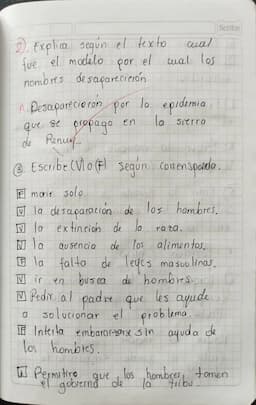 Scribe
2). Explica según el texto cual
fue el modelo por el cual los
nombres desaparecieron
R. Desaparecieron por la epidemia
que se propago en la sierra
de
③ Escribe (V) o (F) según corresponda.
F morir solo
V la desaparación de los hombres.
V la extinción de la raza.
V la ausencia de los alimentos.
F la falta de leyes masculinas.
V ir en busca de hombres
V Pedir al padre que les ayude
a solucionar el problema.
F Intenta embarazarse sin ayuda de
los hombres.
Permitiro que los hombres tomen
el gobierno de la tribu